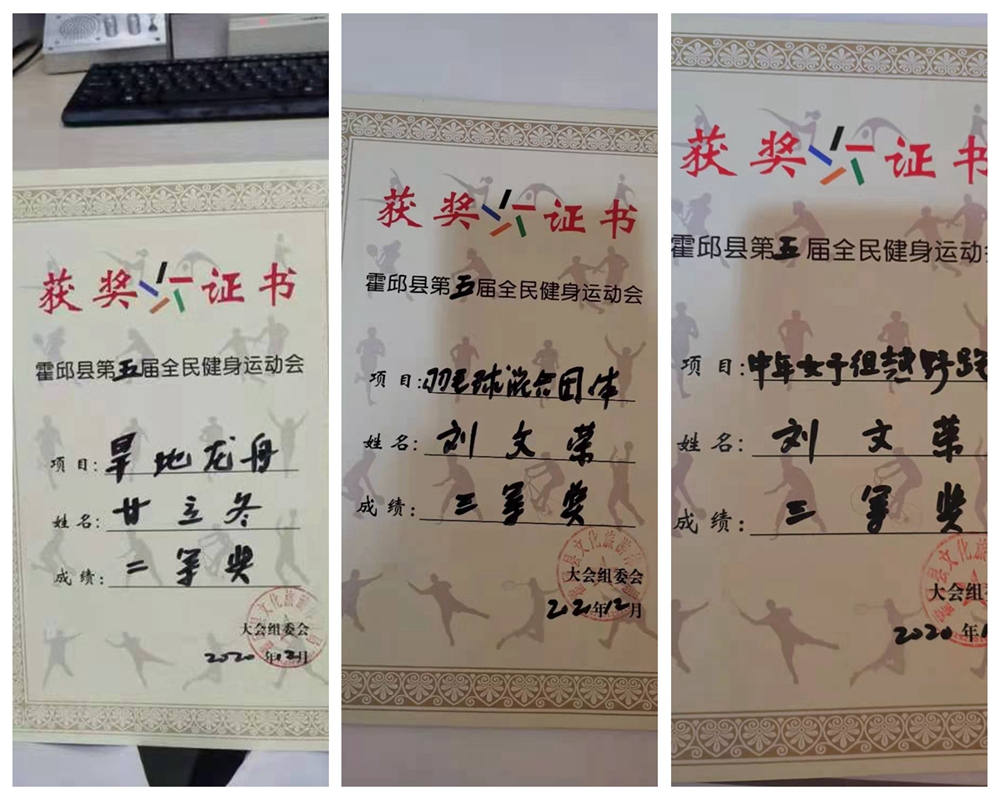 获奖证书
霍邱县第五届全民健身运动会
项目:旱地龙舟
姓名:甘立冬
成绩:二等奖
大会组委会
2020年12月
获奖证书
霍邱县第五届全民健身运动会
项目:羽毛球混合团体
姓名:刘文荣
成绩:三等奖
县文化旅游
大会组委会
2020年12月
获奖证书
霍邱县第五届全民健身运动
项目:中年女子组越野跑
姓名:刘文荣
成绩:三等奖
县文化旅
大会组委
2020年